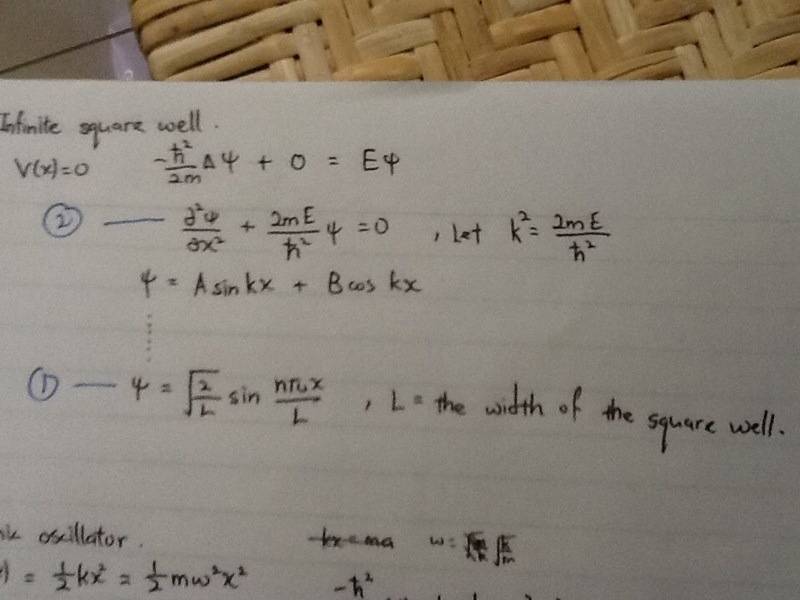 Infinite square well.
V(x)=0 -ħ²/2m Δψ + 0 = Eψ
② — ∂²ψ/∂x² + 2mE/ħ² ψ = 0 , Let k² = 2mE/ħ²
ψ = A sin kx + B cos kx
① — ψ = √(2/L) sin nπx/L , L = the width of the square well.
oscillator. -kx=ma w= √k/m
= ½kx² = ½mw²x² -ħ²